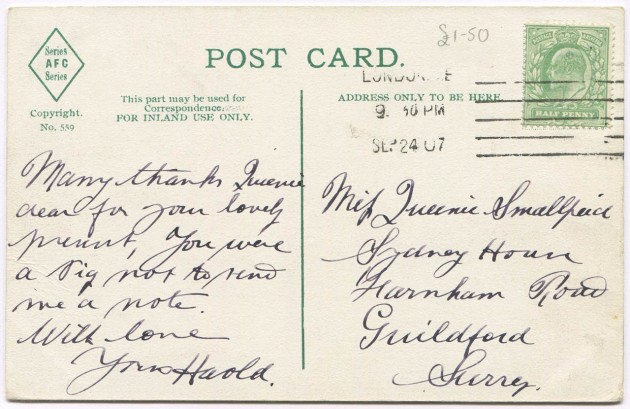 £1-50
Series
AFC
Series
Copyright.
No. 559
POST CARD.
This part may be used for
Correspondence
FOR INLAND USE ONLY.
ADDRESS ONLY TO BE HERE
9. 30 PM
SEP 24 07
HALF PENNY
Many thanks Queenie
dear for your lovely
present, You were
a Pig not to send
me a note.
With love
Yours Harold.
Miss Queenie Smallpeice
Sydney House
Farnham Road
Guildford
Surrey.